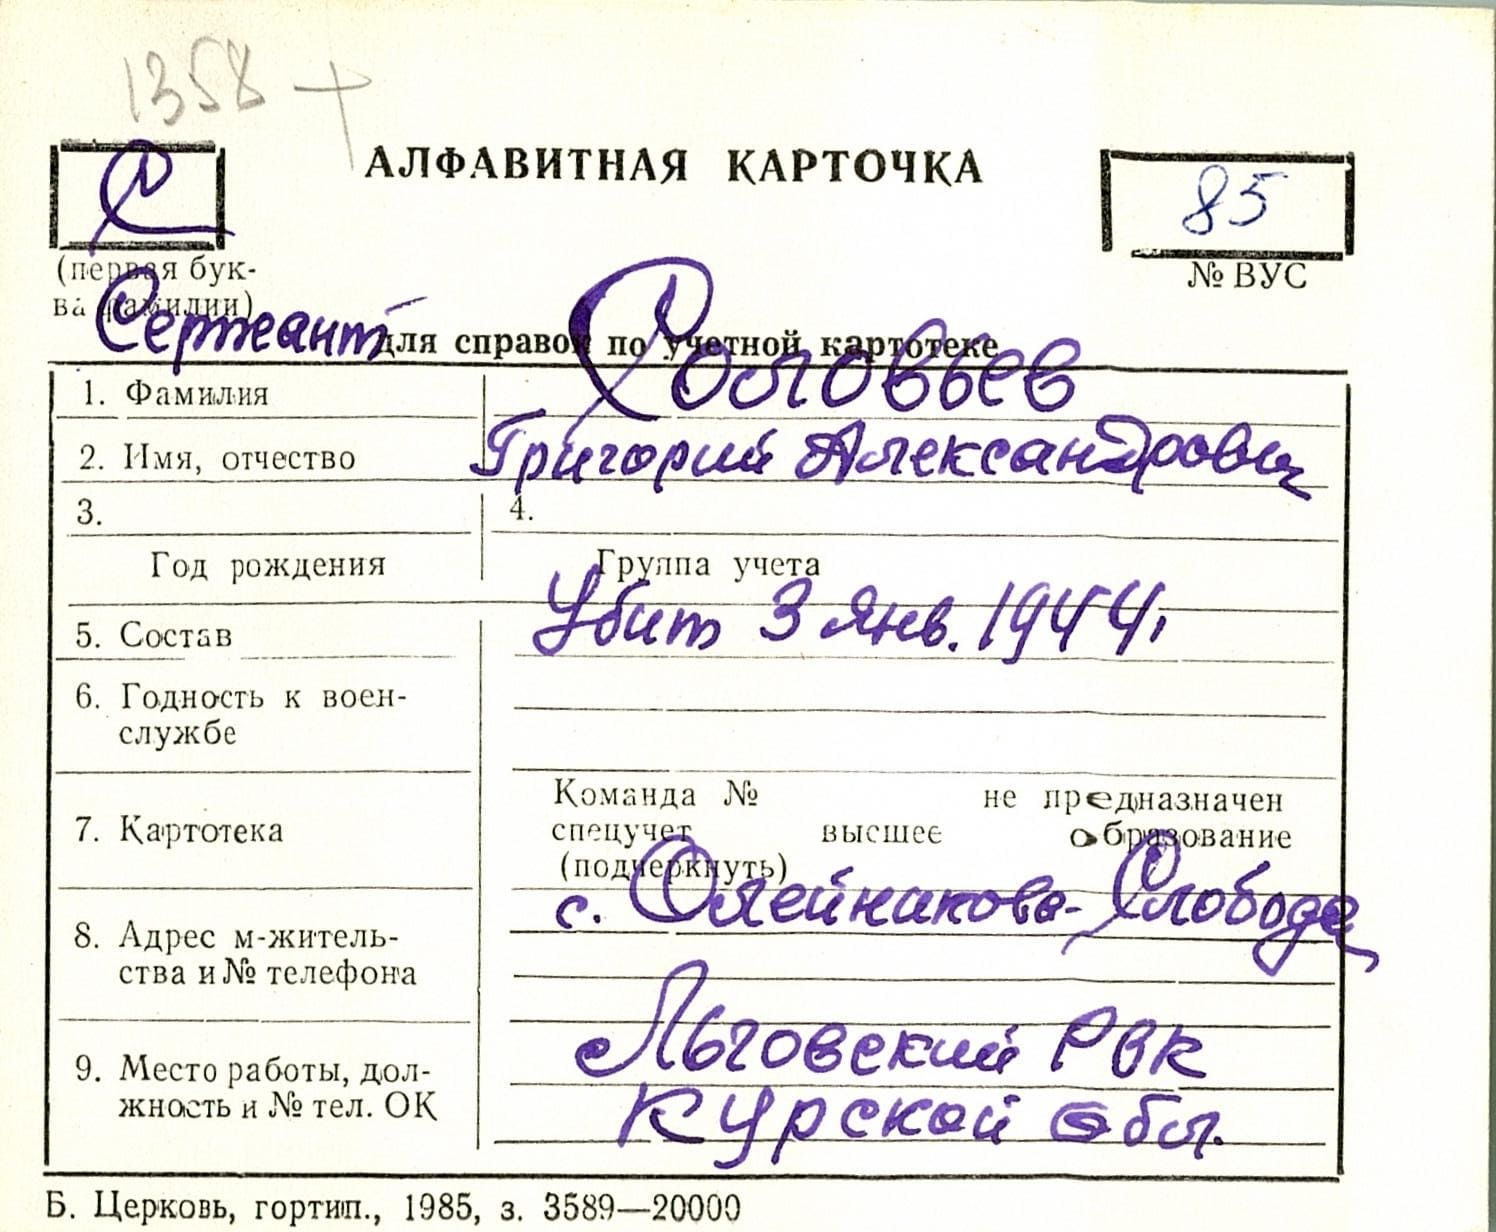 1358 +
С
АЛФАВИТНАЯ КАРТОЧКА
85
(первая бук-
ва фамилии)
№ ВУС
Сержант
для справок по учетной картотеке
1. Фамилия
Соловьев
2. Имя, отчество
Григорий Александрович
3.
4.
Год рождения
Группа учета
5. Состав
Убит 3 Янв. 1944г
6. Годность к воен-
службе
7. Картотека
Команда № не предназначен
спецучет высшее образование
(подчеркнуть)
с. Олейникова-Слобода
8. Адрес м-житель-
ства и № телефона
9. Место работы, дол-
жность и № тел. ОК
Льговский РВК
Курской обл.
Б. Церковь, гортип., 1985, з. 3589—20000